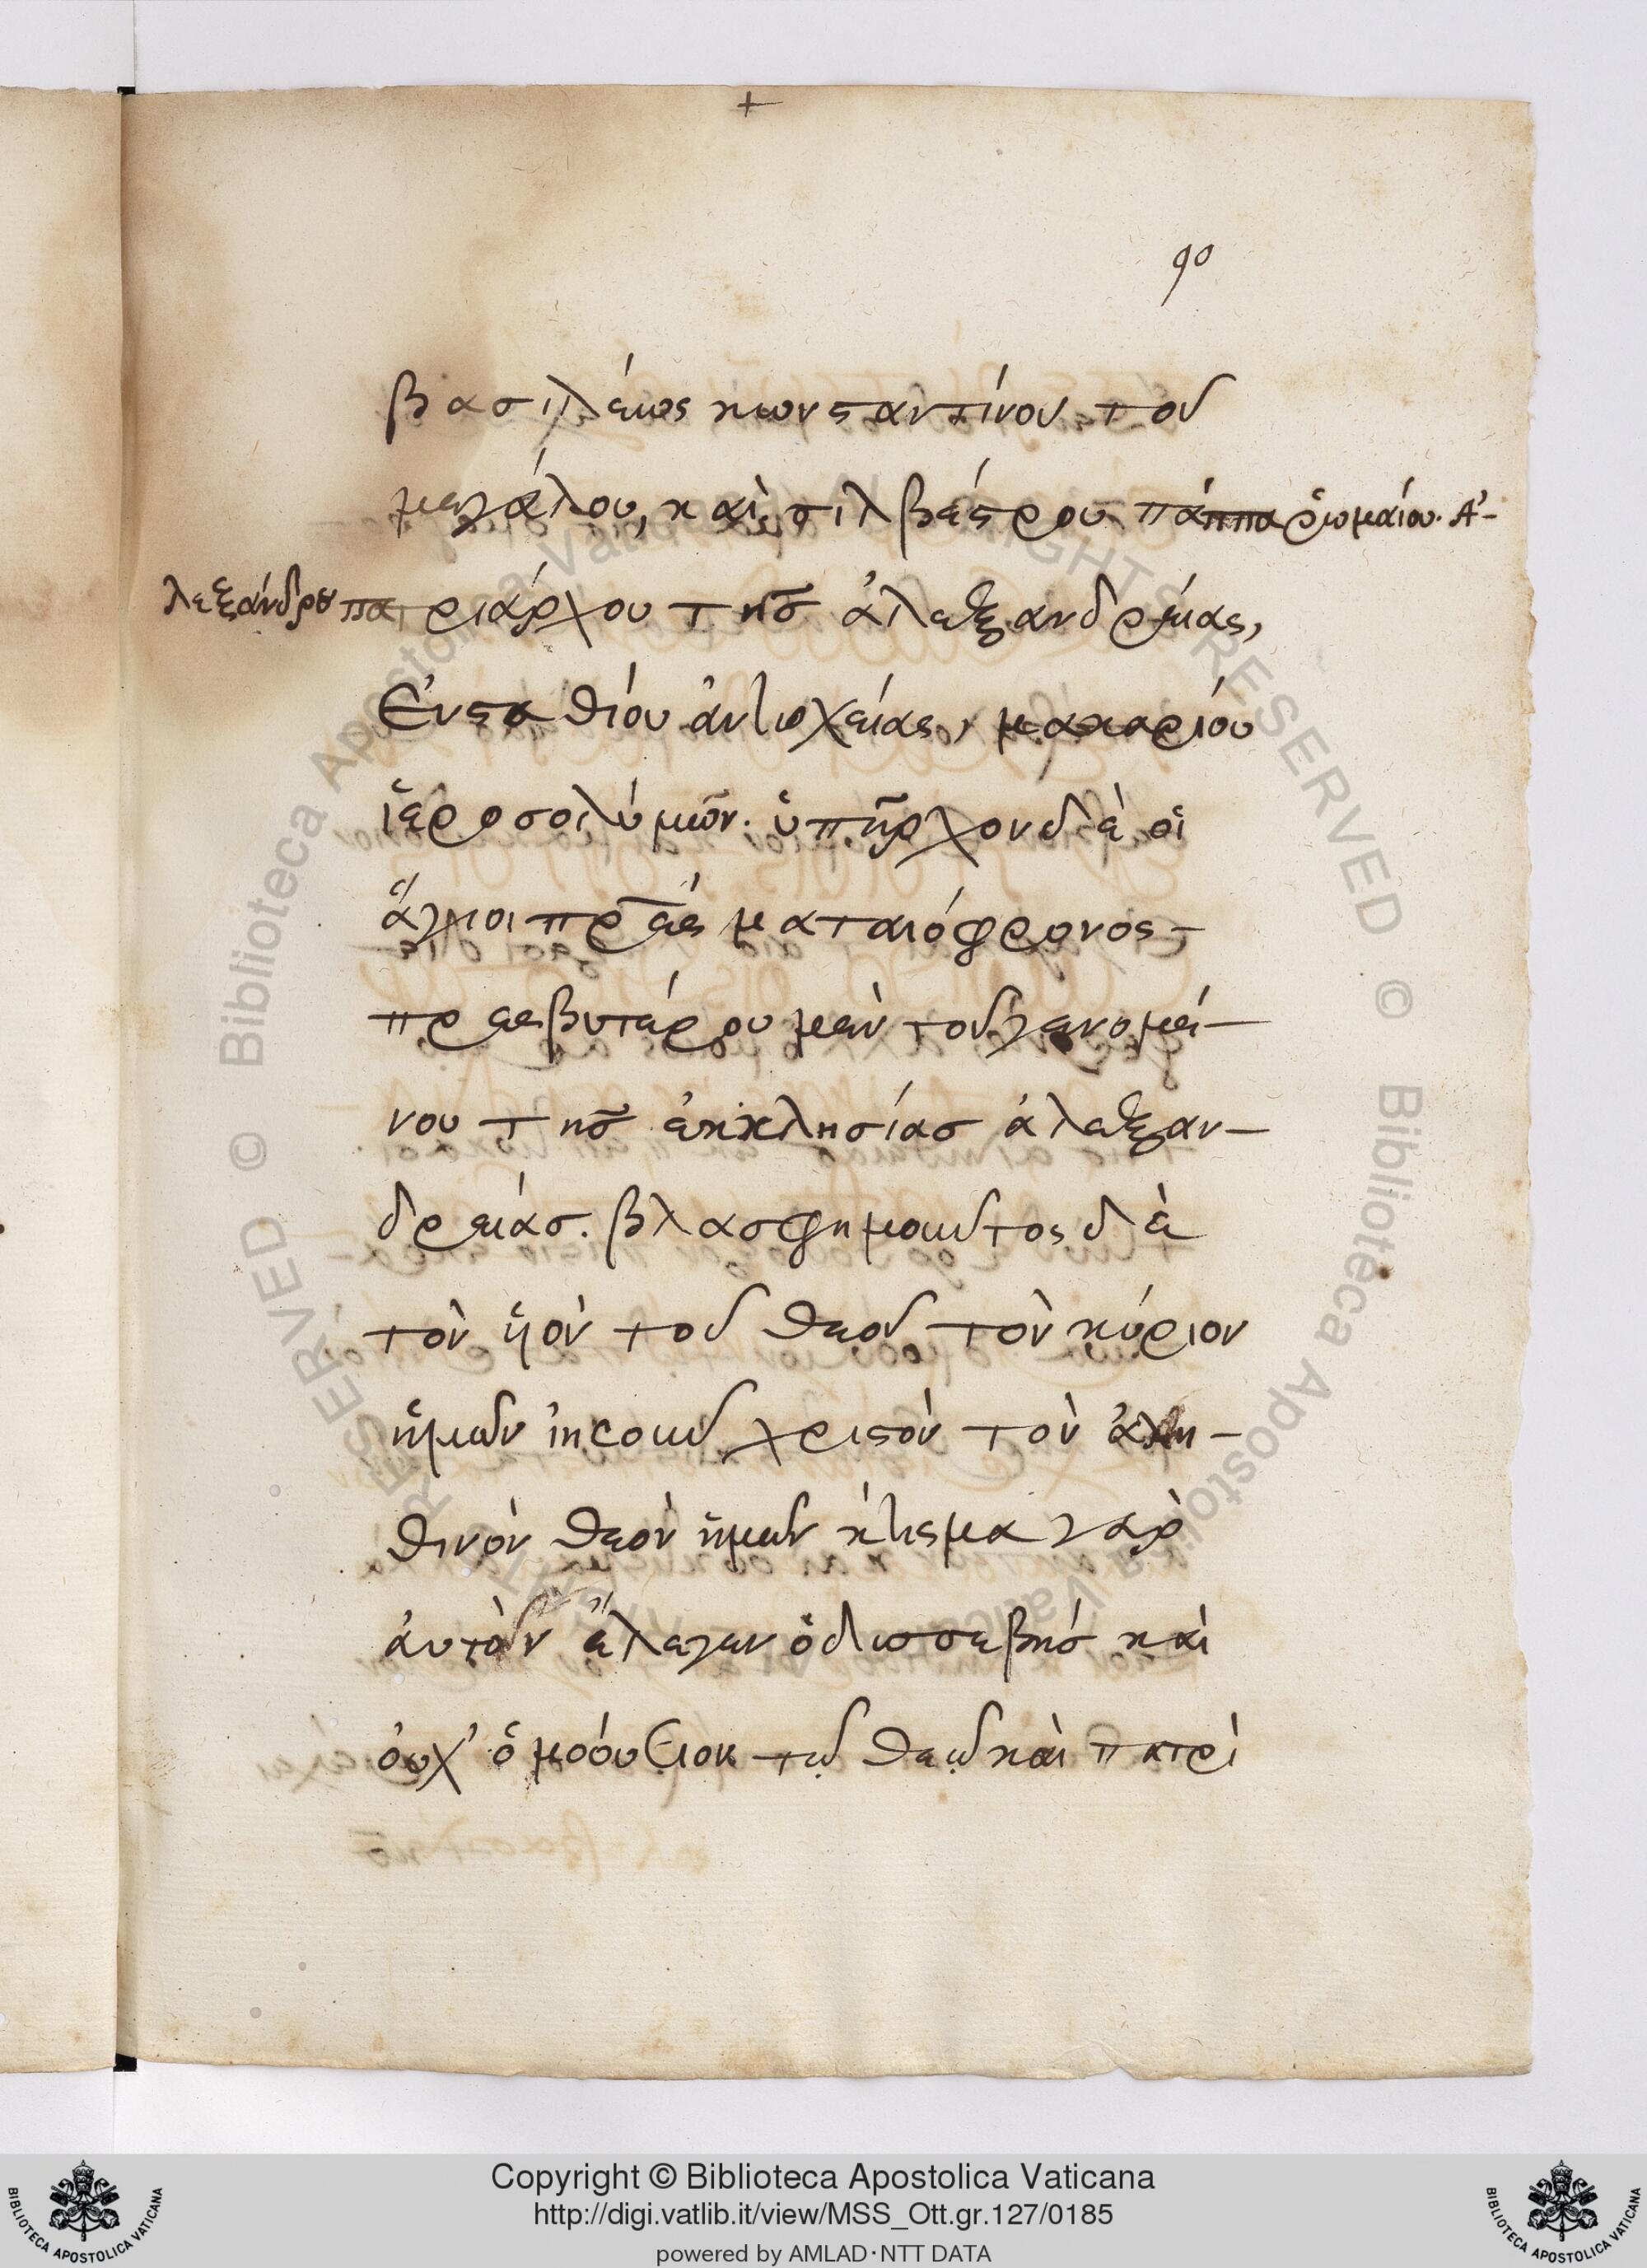 +
90
βασιλέως κωνσταντίνου τοῦ
μεγάλου, καὶ σιλβέστρου πάππα ῥωμαίου. Ἀ-
λεξάνδρου πατριάρχου τῆς ἀλεξανδρείας,
Ἐυσταθίου ἀντιοχείας, μακαρίου
ἱεροσολύμων. ὑπῆρχον δὲ οἱ
ἅγιοι πρ̅ες ματαιόφρονος –
πρεσβυτέρου μὲν τοῦ γενομέ –
νου τῆς ἐκκλησίας ἀλεξαν –
δρείας. βλασφημοῦντος δὲ
τὸν ὑιὸν τοῦ θεοῦ τὸν κύριον
ἡμῶν ἰησοῦν χριστὸν τὸν ἀλη –
θινὸν θεὸν ἡμῶν κτίσμα γὰρ
ἀυτὸν ἔλεγεν ὁ δυσσεβὴς καὶ
ὀυχ' ὁμοόυσιον τῷ θεῷ καὶ πατρὶ
© Biblioteca Apostolica Vaticana ALL RIGHTS RESERVED © Biblioteca Apostolica Vaticana ALL RIGHTS RESERVED
Copyright © Biblioteca Apostolica Vaticana
http://digi.vatlib.it/view/MSS_Ott.gr.127/0185
powered by AMLAD·NTT DATA
BIBLIOTECA APOSTOLICA VATICANA
BIBLIOTECA APOSTOLICA VATICANA